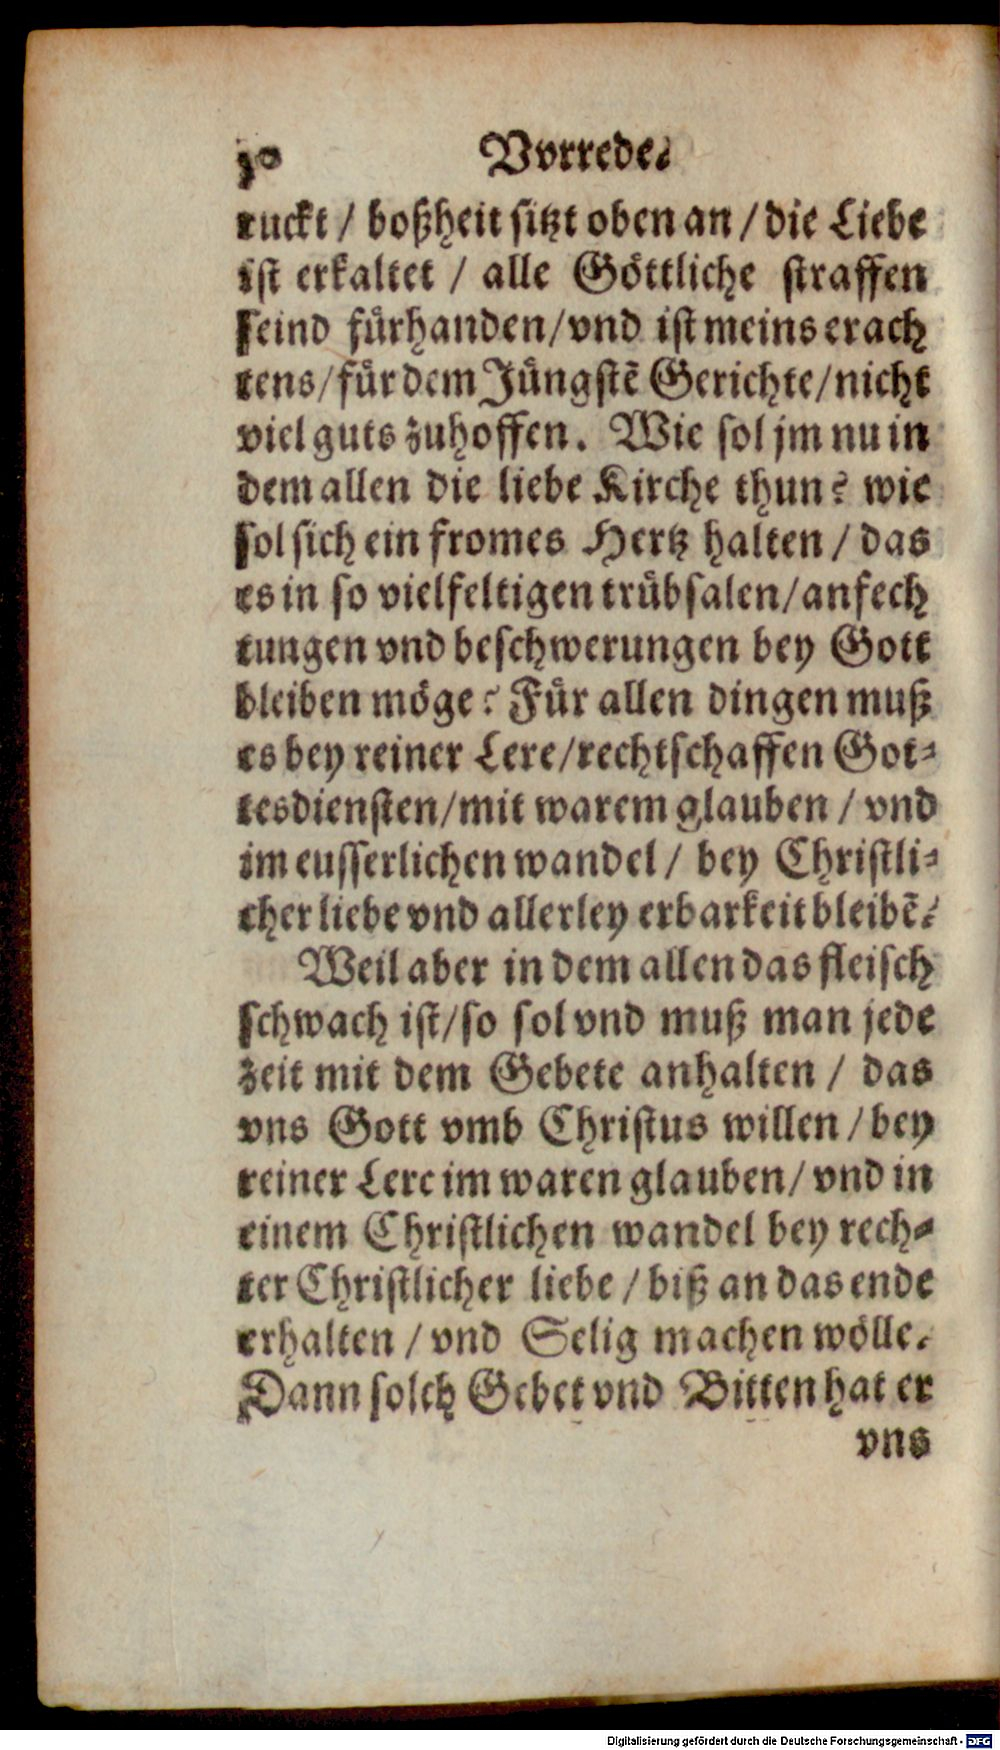 30 Vorrede.
ruckt / boßheit sitzt oben an / die Liebe
ist erkaltet / alle Göttliche straffen
seind fürhanden / vnd ist meins erach
tens / für dem Jüngstē Gerichte / nicht
viel guts zuhoffen. Wie sol jm nu in
dem allen die liebe Kirche thun? wie
sol sich ein fromes Hertz halten / das
es in so vielfeltigen trübsalen / anfech
tungen vnd beschwerungen bey Gott
bleiben möge? Für allen dingen muß
es bey reiner Lere / rechtschaffen Got-
tesdiensten / mit warem glauben / vnd
im eusserlichen wandel / bey Christli-
cher liebe vnd allerley erbarkeit bleibē.
Weil aber in dem allen das fleisch
schwach ist / so sol vnd muß man jede
zeit mit dem Gebete anhalten / das
vns Gott vmb Christus willen / bey
reiner Lere im waren glauben / vnd in
einem Christlichen wandel bey rech-
ter Christlicher liebe / biß an das ende
erhalten / vnd Selig machen wölle.
Dann solch Gebet vnd Bitten hat er
vns
Digitalisierung gefördert durch die Deutsche Forschungsgemeinschaft - DFG